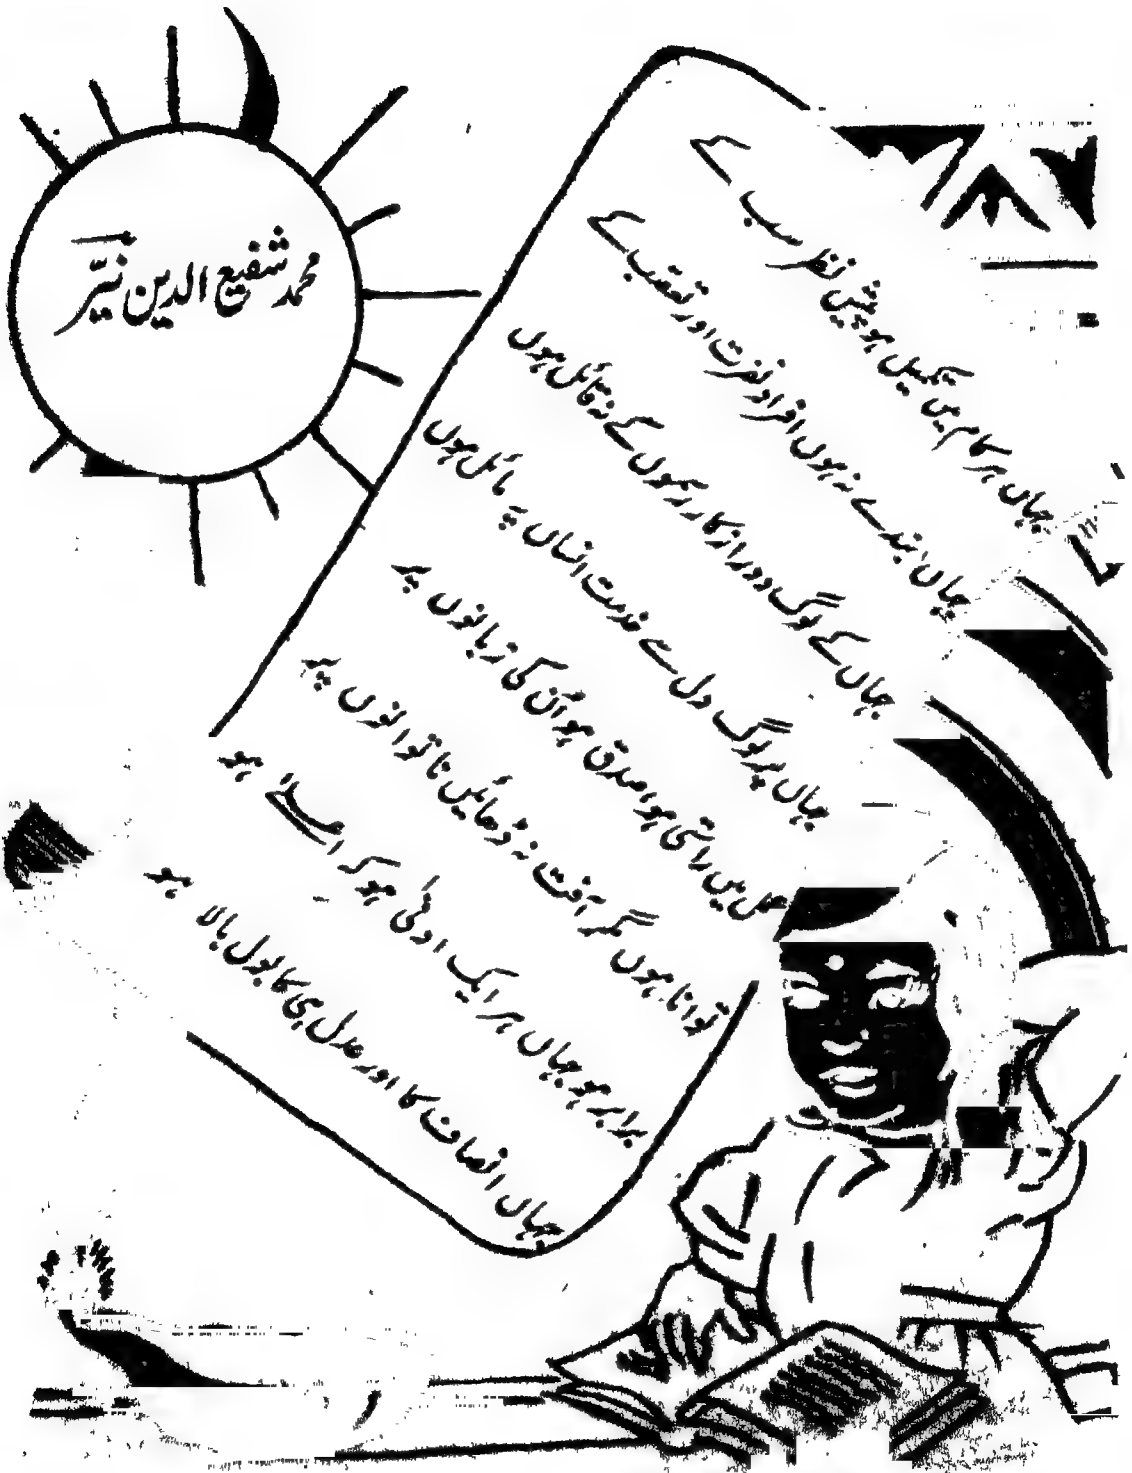 محمد شفیع الدین نیّر
جہاں ہر کام میں تکمیل ہو پیشِ نظر سب کے
جہاں بندے نہ ہوں افراد نفرت اور تعصّب کے
جہاں کے لوگ دور ازکار رسموں کے نہ قائل ہوں
جہاں پر لوگ دل سے خدمت انساں پہ مائل ہوں
عمل میں راستی ہو، صدق ہو اُن کی زبانوں پر
توانا ہوں مگر آفت نہ ڈھائیں ناتوانوں پر
برابر ہو جہاں ہر ایک ادنیٰ ہو کہ اعلےٰ ہو
جہاں انصاف کا اور عدل ہی کا بول بالا ہو